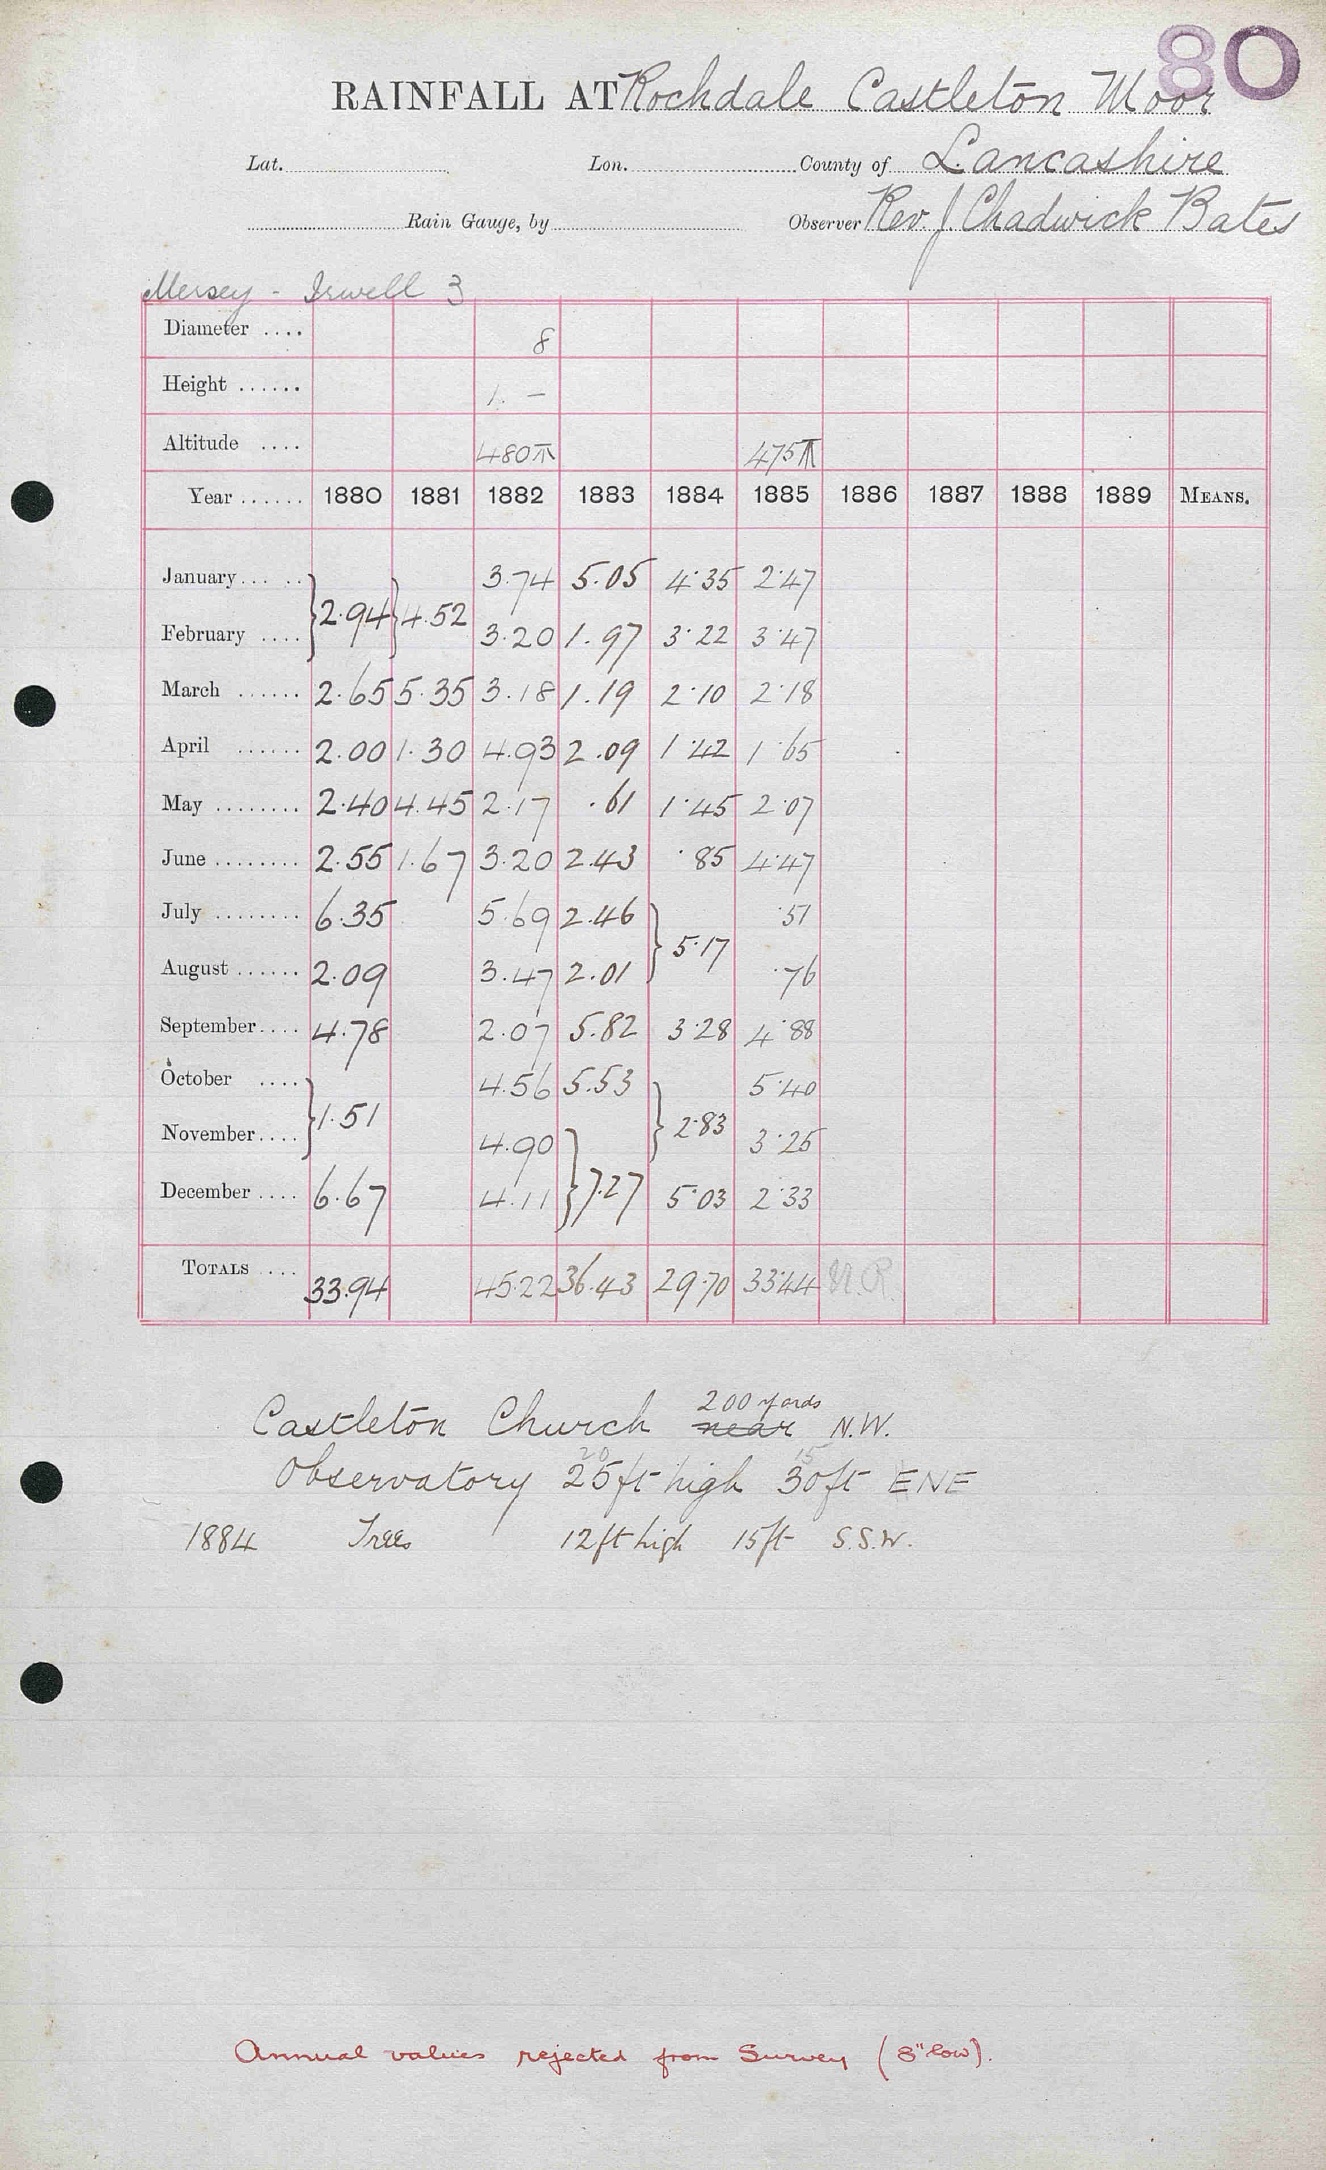 80
RAINFALL AT Rochdale Castleton Moor
Lat. Lon. County of Lancashire
Rain Gauge, by Observer Rev. J. Chadwick Bates
Mersey - Irwell 3
Diameter .... 8
Height ...... 1. -
Altitude .... 480 475
Year ...... 1880 1881 1882 1883 1884 1885 1886 1887 1888 1889 MEANS.
January ... .. 3.74 5.05 4.35 2.47
} 2.94 } 4.52
February .... 3.20 1.97 3.22 3.47
March ...... 2.65 5.35 3.18 1.19 2.10 2.18
April ...... 2.00 1.30 4.93 2.09 1.42 1.65
May ........ 2.40 4.45 2.17 .61 1.45 2.07
June ........ 2.55 1.67 3.20 2.43 .85 4.47
July ........ 6.35 5.69 2.46 .51
} 5.17
August ...... 2.09 3.47 2.01 .76
September .... 4.78 2.07 5.82 3.28 4.88
October .... 4.56 5.53 5.40
} 1.51 } 2.83
November .... 4.90 3.25
December .... 6.67 4.11 } 7.27 5.03 2.33
TOTALS .... 33.94 45.22 36.43 29.70 33.44 N.R.
200 yards
Castleton Church near N.W.
20 15
Observatory 25ft high 30ft ENE
1884 Trees 12ft high 15ft S.S.W.
Annual values rejected from Survey (8" low).